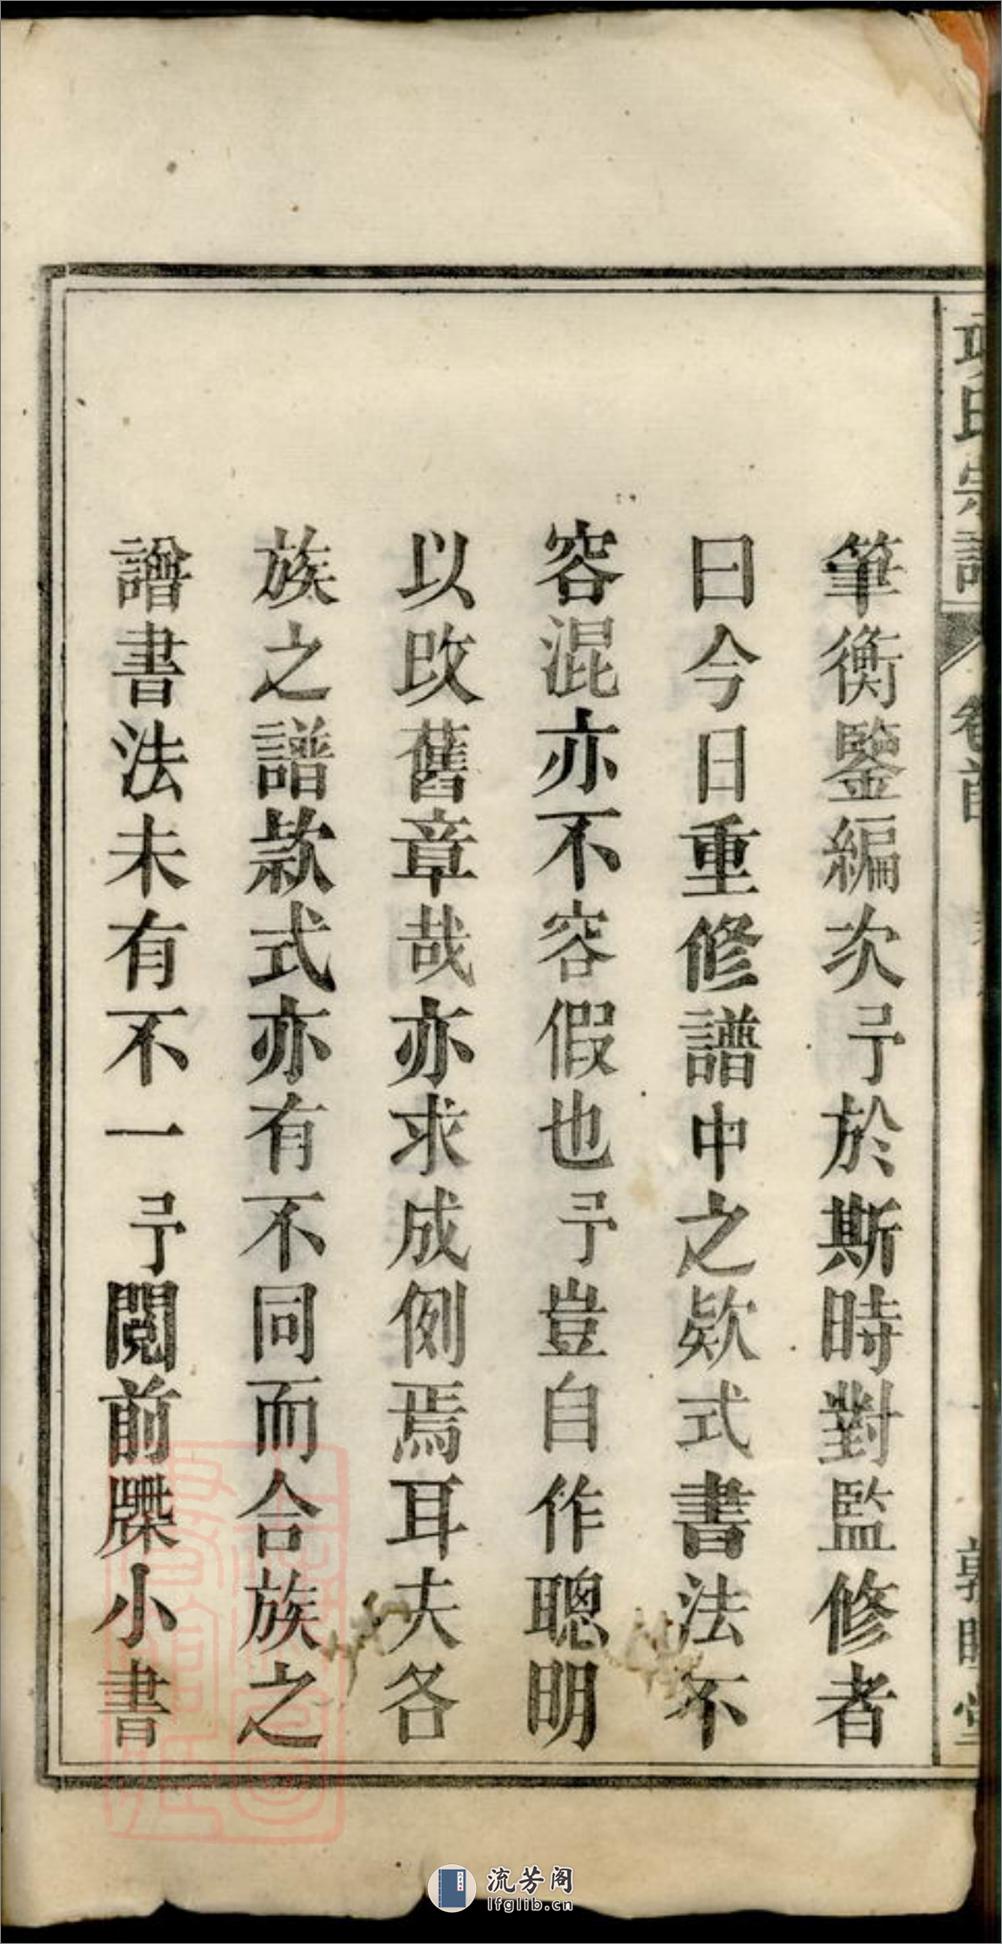 氏宗譜
卷首
敦睦堂
筆衡鑒編次予於斯時對監修者
曰今日重修譜中之欵式書法不
容混亦不容假也予豈自作聰明
以改舊章哉亦求成例焉耳夫各
族之譜款式亦有不同而合族之
譜書法未有不一予閱前牒小書
流芳阁
lfglib.cn